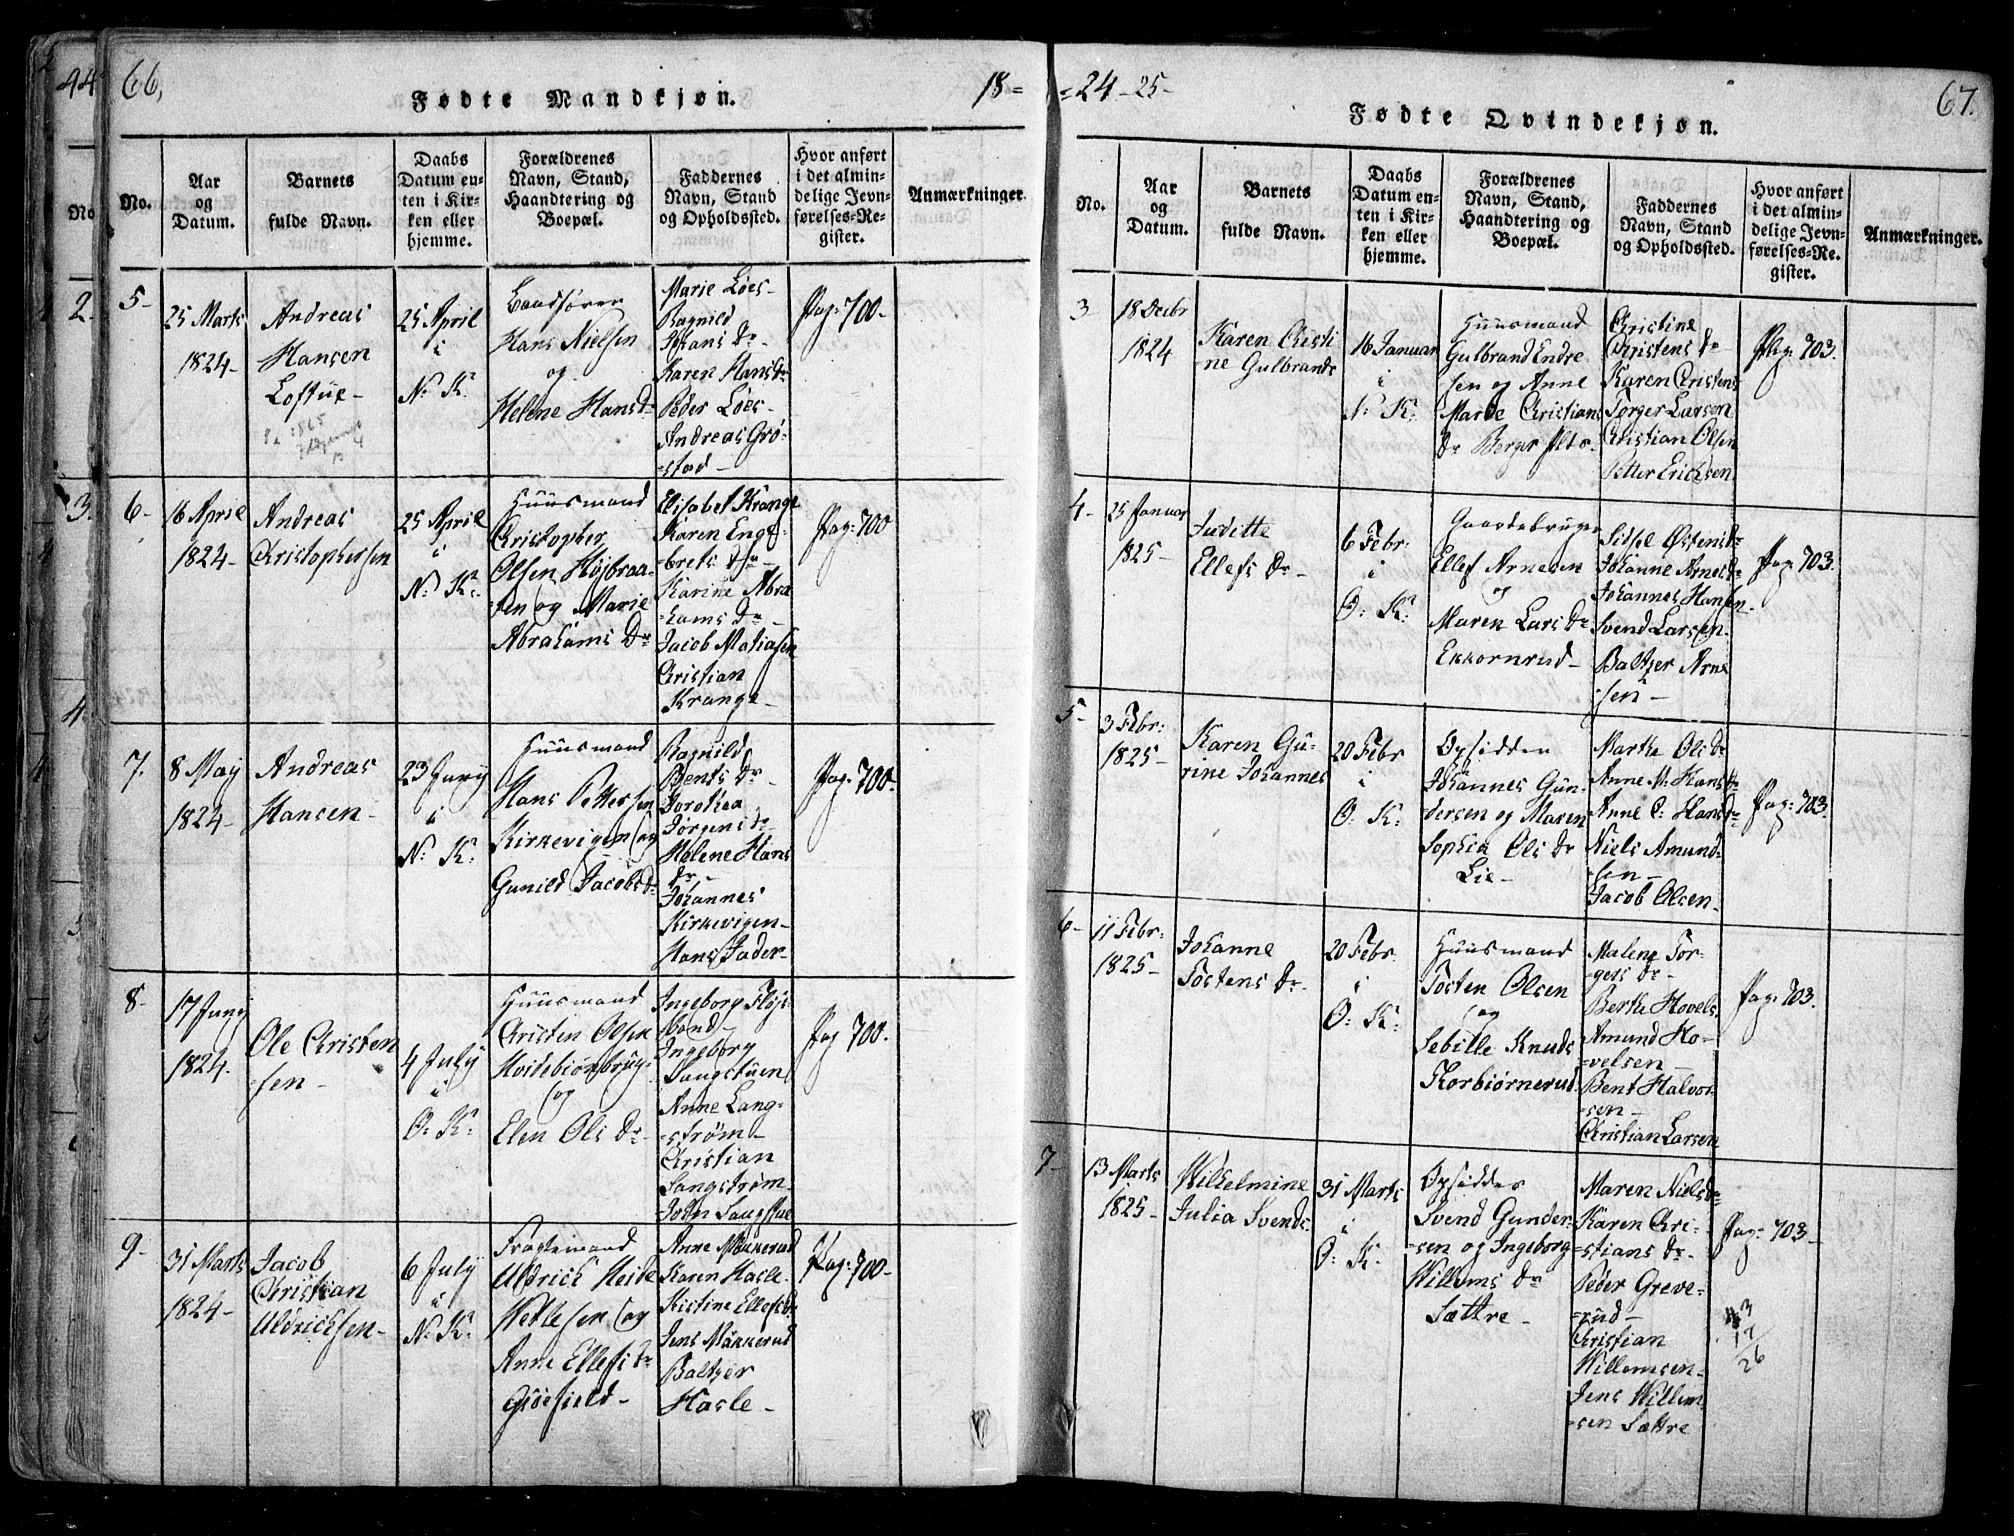 66,
Fødte Mandkjøn.
18=
No.
Aar
og
Datum.
Barnets
fulde Navn.
Daabs
Datum en-
ten i Kir-
ken eller
hjemme.
Forældrenes
Navn, Stand,
Haandtering og
Boepæl.
Faddernes
Navn, Stand
og Opholdssted.
Hvor anført
i det almin-
delige Jevn-
førelses-Re-
gister.
Anmærkninger.
5-
25 Marts
1824-
Andreas
Hansen
Loftue-
25 April
i
N. K.
Hans Nielsen
og
Helene Hansdr
Marie Löes-
Ragnild
Karen Hansdr
Peder Löes-
Andreas Grö-
=stad-
Pag: 700-
6-
16 April
1824-
Andreas
Christophersen
25 April
i
N. K:
Huusmand
Christopher
Olsen Höjbraa-
=ten og Marie
Abrahams Dr
Elisabet Krange
Karen Enge-
=brets Dr-
Karine Abra
=hams Dr-
Jacob Matiasen
Christian
Krange-
Pag: 700
7.
8 May
1824-
Andreas
Hansen-
23 Juny
i
N: K:
Huusmand
Hans Pettersen
Kirkevigen og
Gunild Jacobsdr
Ragnild
Bents Dr
Dorothea
Jörgensdr
Helene Hans
Dr-
Johannes
Kirkevigen-
Hans Jader-
Pag: 700-
8-
17 Juny
1824.
Ole Christen
=sen-
4 July
i
O: K:
Huusmand
Christen Olsen
Hvidebiörnbrug-
og
Elen Ols Dr-
Ingeborg Flöjs-
=bond-
Ingeborg
Sangstuen
Anne Lang-
=ström-
Christian
Sangström-
Pag 700.
9-
31 Marts
1824-
Jacob
Christian
Uldricksen-
6 July
i
N: K:
Uldrick Heide
Wetlesen og
Anne Ellefsdr
Anne Makkerud
Karen Hasle-
Kistine Ellefsdr
Jens Makkerud
Baltzer
Hasle-
Pag: 700-
=24-25-
67.
Fødte Qvindekjøn.
No.
Aar
og
Datum.
Barnets
fulde Navn.
Daabs
Datum en-
ten i Kir-
ken eller
hjemme.
Forældrenes
Navn, Stand,
Haandtering og
Boepæl.
Faddernes
Navn, Stand
og Opholdssted.
Hvor anført
i det almin-
delige Jevn-
førelses-Re-
gister.
Anmærkninger.
3-
18 Decbr
1824
Karen Christi
=ne Gulbrands
16 Januar
i
N: K:
Huusmand
Gulbrand Endre
=sen og Anne
Marie Christians
Dr
Christine
Christens Dr
Karen Cristens
Torger Larsen
Christian Olsen
Petter Ericksen
Pag: 703.
4-
25 Januar
1825-
Juditte
Ellefs Dr-
6 Febr:
i
O: K:
Gaardebruger
Ellef Arnesen
og
Maren Lars Dr
Ekkornrud-
Sidsel Östensdr
Johanne Arnesdr
Johannes Hansen-
Svend Larsen-
Baltzer Arne
=sen-
Pag: 703.
5-
3 Febr:
1825-
Karen Gu-
rine Johannes
20 Febr
i
O: K:
Opsidden
Johannes Gun-
dersen og Maren
Sophia Ols Dr
Lie-
Marthe Ols dr
Anne M. Hans Dr
Anne C: Hansdr
Niels Amund-
=sen-
Jacob Olsen-
Pag: 703.
6-
11 Febr:
1825-
Johanne
Tostens Dr-
20 Febr.
i
O: K:
Huusmand
Tosten Olsen
og
Sebille Knuds
Korbiørnerud
Malene Tor-
gers Dr-
Berthe Hovels.
Amund Ho-
=velsen-
Bent Halvor
=sen-
Christian Larsen
Pag: 703.
7-
13 Marts
1825-
Wilhelmine
Julia Svends
31 Marts
i
O: K:
Opsidder
Svend Gunder-
=sen og Ingeborg
Willums Dr
Sættre-
Maren Nielsdr
Karen Chri-
=stians Dr-
Peder Greve-
=rud-
Christian
Willumsen-
Jens Willum
=sen Sættre
Pag: 703-